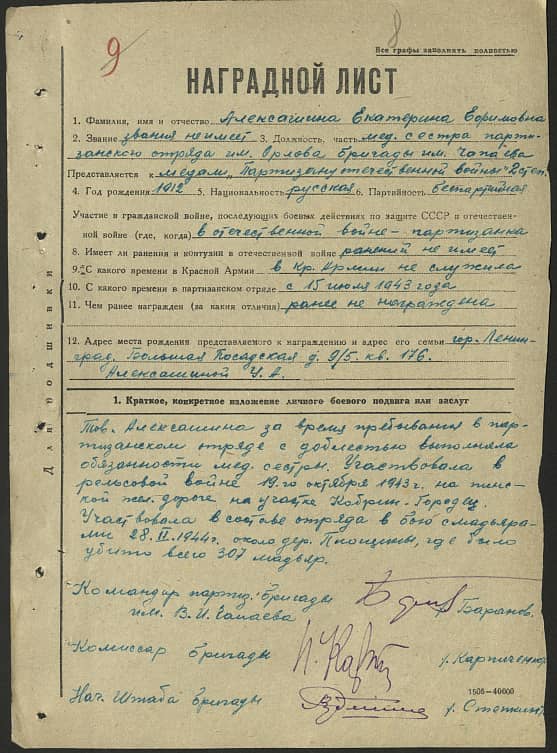 9
8
Все графы заполнять полностью
НАГРАДНОЙ ЛИСТ
1. Фамилия, имя и отчество Алексашина Екатерина Ефимовна
2. Звание звания не имеет 3. Должность, часть мед. сестра парти-
занского отряда им. Орлова бригады им. Чапаева
Представляется к медали „Партизану отечественной войны" 2 степ.
4. Год рождения 1912 5. Национальность русская 6. Партийность беспартийная
Участие в гражданской войне, последующих боевых действиях по защите СССР и отечествен-
ной войне (где, когда) в отечественной войне - партизанка
8. Имеет ли ранения и контузии в отечественной войне ранений не имеет
9. С какого времени в Красной Армии в Кр. Армии не служила
10. С какого времени в партизанском отряде с 15 июля 1943 года
11. Чем ранее награжден (за какия отличия) ранее не награждена
12. Адрес места рождения представляемого к награждению и адрес его семьи гор. Ленин-
град. Большая Посадская д. 9/5. кв. 176.
Алексашиной
Для подшивки
1. Краткое, конкретное изложение личного боевого подвига или заслуг
Тов. Алексашина за время пребывания в пар-
тизанском отряде с доблестью выполняла
обязанности мед. сестры. Участвовала в
рельсовой войне 19-го октября 1943 г. на пинс-
кой жел. дороге на участке Кобрин-Городец.
Участвовала в составе отряда в бою с мадьяра-
ми 28. 1944 г. около дер. где было
убито всего 307 мадьяр.
Командир партиз. бригады
им. В. И. Чапаева /Баранов.
Комиссар бригады /. Карпиченко
Нач. Штаба бригады /.
1505—40000